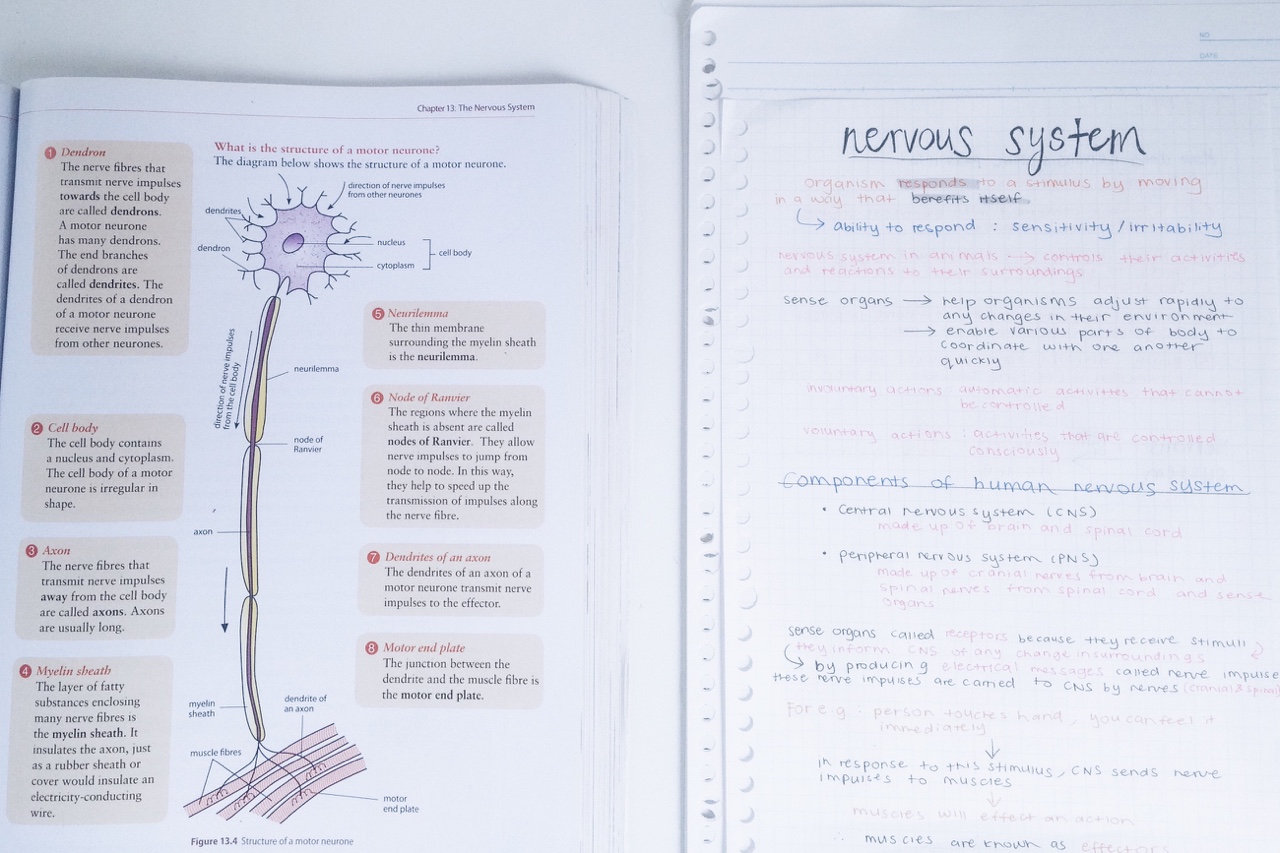 Chapter 13: The Nervous System
What is the structure of a motor neurone?
The diagram below shows the structure of a motor neurone.
1 Dendron
The nerve fibres that
transmit nerve impulses
towards the cell body
are called dendrons.
A motor neurone
has many dendrons.
The end branches
of dendrons are
called dendrites. The
dendrites of a dendron
of a motor neurone
receive nerve impulses
from other neurones.
2 Cell body
The cell body contains
a nucleus and cytoplasm.
The cell body of a motor
neurone is irregular in
shape.
3 Axon
The nerve fibres that
transmit nerve impulses
away from the cell body
are called axons. Axons
are usually long.
4 Myelin sheath
The layer of fatty
substances enclosing
many nerve fibres is
the myelin sheath. It
insulates the axon, just
as a rubber sheath or
cover would insulate an
electricity-conducting
wire.
direction of nerve impulses
from other neurones
dendrites
dendron
nucleus
cell body
cytoplasm
direction of nerve impulses
from the cell body
neurilemma
node of
Ranvier
axon
myelin
sheath
dendrite of
an axon
muscle fibres
motor
end plate
5 Neurilemma
The thin membrane
surrounding the myelin sheath
is the neurilemma.
6 Node of Ranvier
The regions where the myelin
sheath is absent are called
nodes of Ranvier. They allow
nerve impulses to jump from
node to node. In this way,
they help to speed up the
transmission of impulses along
the nerve fibre.
7 Dendrites of an axon
The dendrites of an axon of a
motor neurone transmit nerve
impulses to the effector.
8 Motor end plate
The junction between the
dendrite and the muscle fibre is
the motor end plate.
Figure 13.4 Structure of a motor neurone
NO
DATE
nervous system
organism responds to a stimulus by moving
in a way that benefits itself.
↳ ability to respond : sensitivity / irritability
nervous system in animals → controls their activities
and reactions to their surroundings
sense organs → help organisms adjust rapidly to
any changes in their environment
→ enable various parts of body to
coordinate with one another
quickly
involuntary actions automatic activities that cannot
be controlled
voluntary actions : activities that are controlled
consciously
Components of human nervous system
• Central nervous system (CNS)
made up of brain and spinal cord
• peripheral nervous system (PNS)
made up of cranial nerves from brain and
spinal nerves from spinal cord and sense
organs
sense organs called receptors because they receive stimuli
they inform CNS of any change in surroundings
↳ by producing electrical messages called nerve impulse
these nerve impulses are carried to CNS by nerves (cranial & spinal)
For e.g : person touches hand, you can feel it
immediately
↓
in response to this stimulus, CNS sends nerve
impulses to muscles
↓
muscles will effect an action
∴ muscles are known as effectors